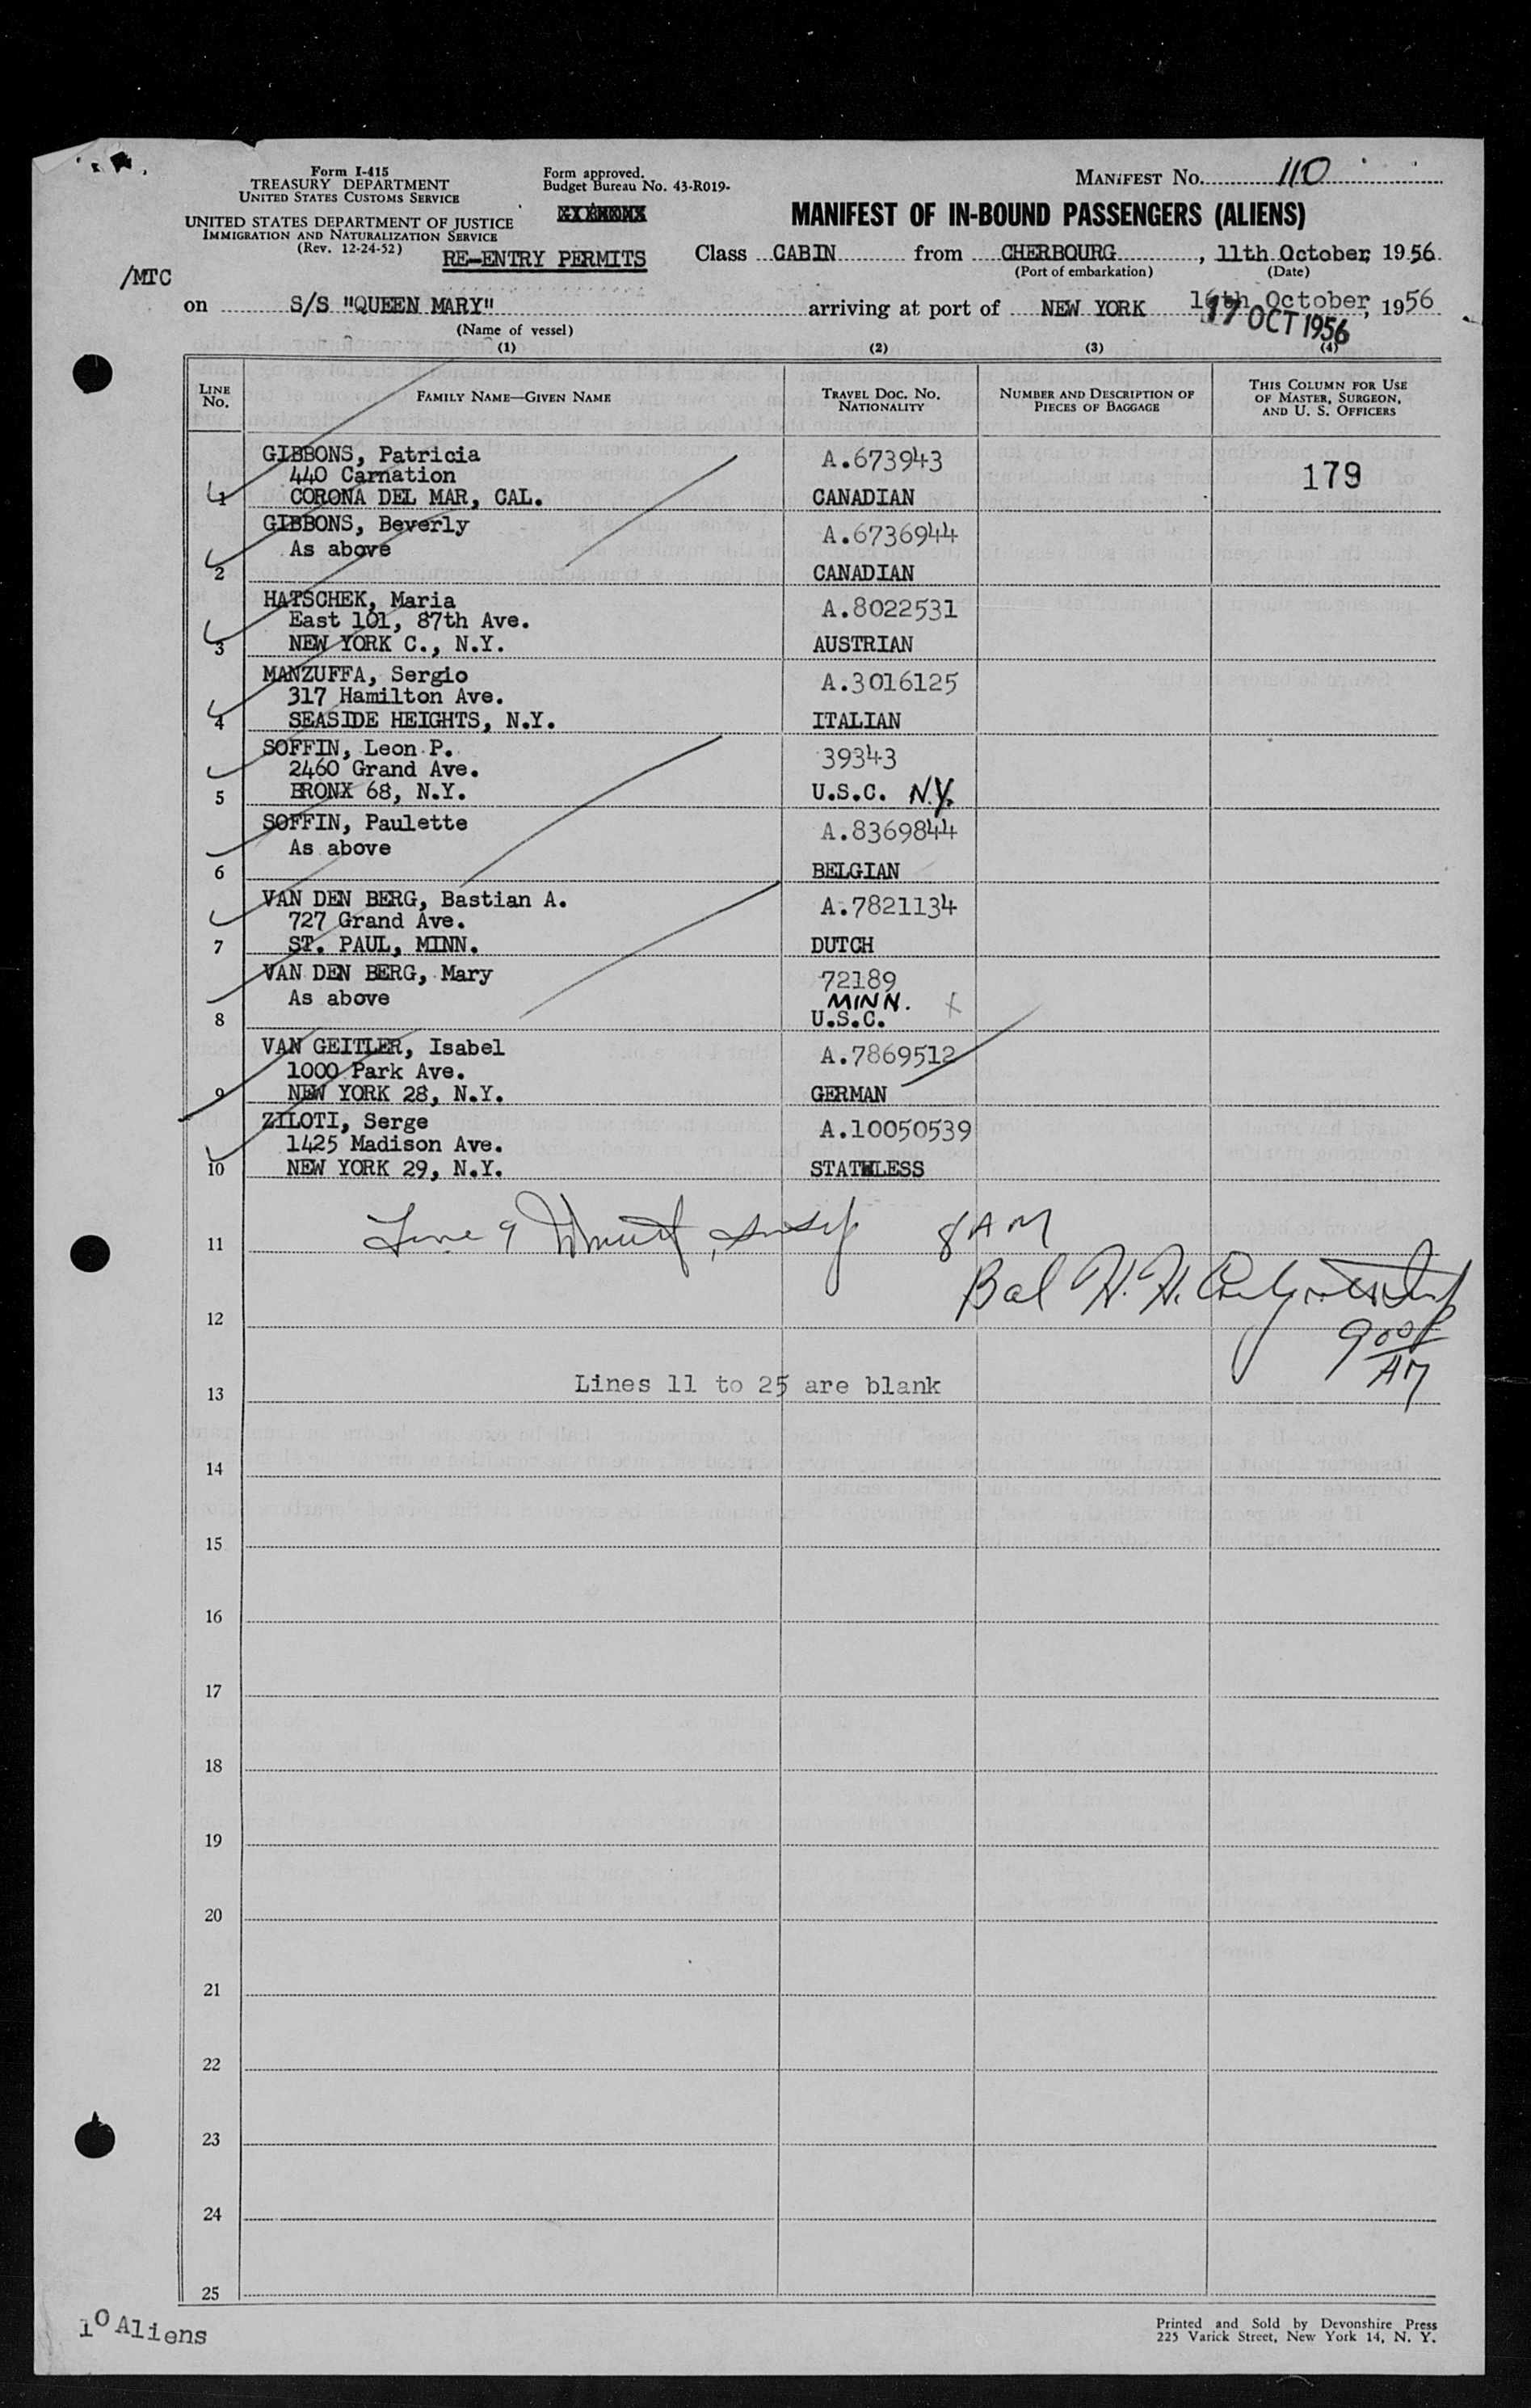 Form I-415
TREASURY DEPARTMENT
UNITED STATES CUSTOMS SERVICE
UNITED STATES DEPARTMENT OF JUSTICE
IMMIGRATION AND NATURALIZATION SERVICE
(Rev. 12-24-52)
Form approved.
Budget Bureau No. 43-R019-
MANIFEST NO. 110
MANIFEST OF IN-BOUND PASSENGERS (ALIENS)
/MTC
RE-ENTRY PERMITS
Class CABIN from CHERBOURG, 11th October, 1956.
(Port of embarkation) (Date)
on S/S "QUEEN MARY" arriving at port of NEW YORK 16th October, 1956
17 OCT 1956
(Name of vessel)
(1) (2) (3) (4)
LINE NO. FAMILY NAME—GIVEN NAME TRAVEL DOC. NO. NATIONALITY NUMBER AND DESCRIPTION OF PIECES OF BAGGAGE THIS COLUMN FOR USE OF MASTER, SURGEON, AND U. S. OFFICERS
GIBBONS, Patricia A.673943 179
440 Carnation
1 CORONA DEL MAR, CAL. CANADIAN
GIBBONS, Beverly A.6736944
As above
2 CANADIAN
HATSCHEK, Maria A.8022531
East 101, 87th Ave.
3 NEW YORK C., N.Y. AUSTRIAN
MANZUFFA, Sergio A.3016125
317 Hamilton Ave.
4 SEASIDE HEIGHTS, N.Y. ITALIAN
SOFFIN, Leon P. 39343
2460 Grand Ave.
5 BRONX 68, N.Y. U.S.C. N.Y.
SOFFIN, Paulette A.8369844
As above
6 BELGIAN
VAN DEN BERG, Bastian A. A.7821134
727 Grand Ave.
7 ST. PAUL, MINN. DUTCH
VAN DEN BERG, Mary 72189
As above MINN.
8 U.S.C.
VAN GEITLER, Isabel A.7869512
1000 Park Ave.
9 NEW YORK 28, N.Y. GERMAN
ZILOTI, Serge A.10050539
1425 Madison Ave.
10 NEW YORK 29, N.Y. STATELESS
11 Line 9 8 AM
Bal H. H.
12
900
AM
13 Lines 11 to 25 are blank
14
15
16
17
18
19
20
21
22
23
24
25
10 Aliens
Printed and Sold by Devonshire Press
225 Varick Street, New York 14, N. Y.